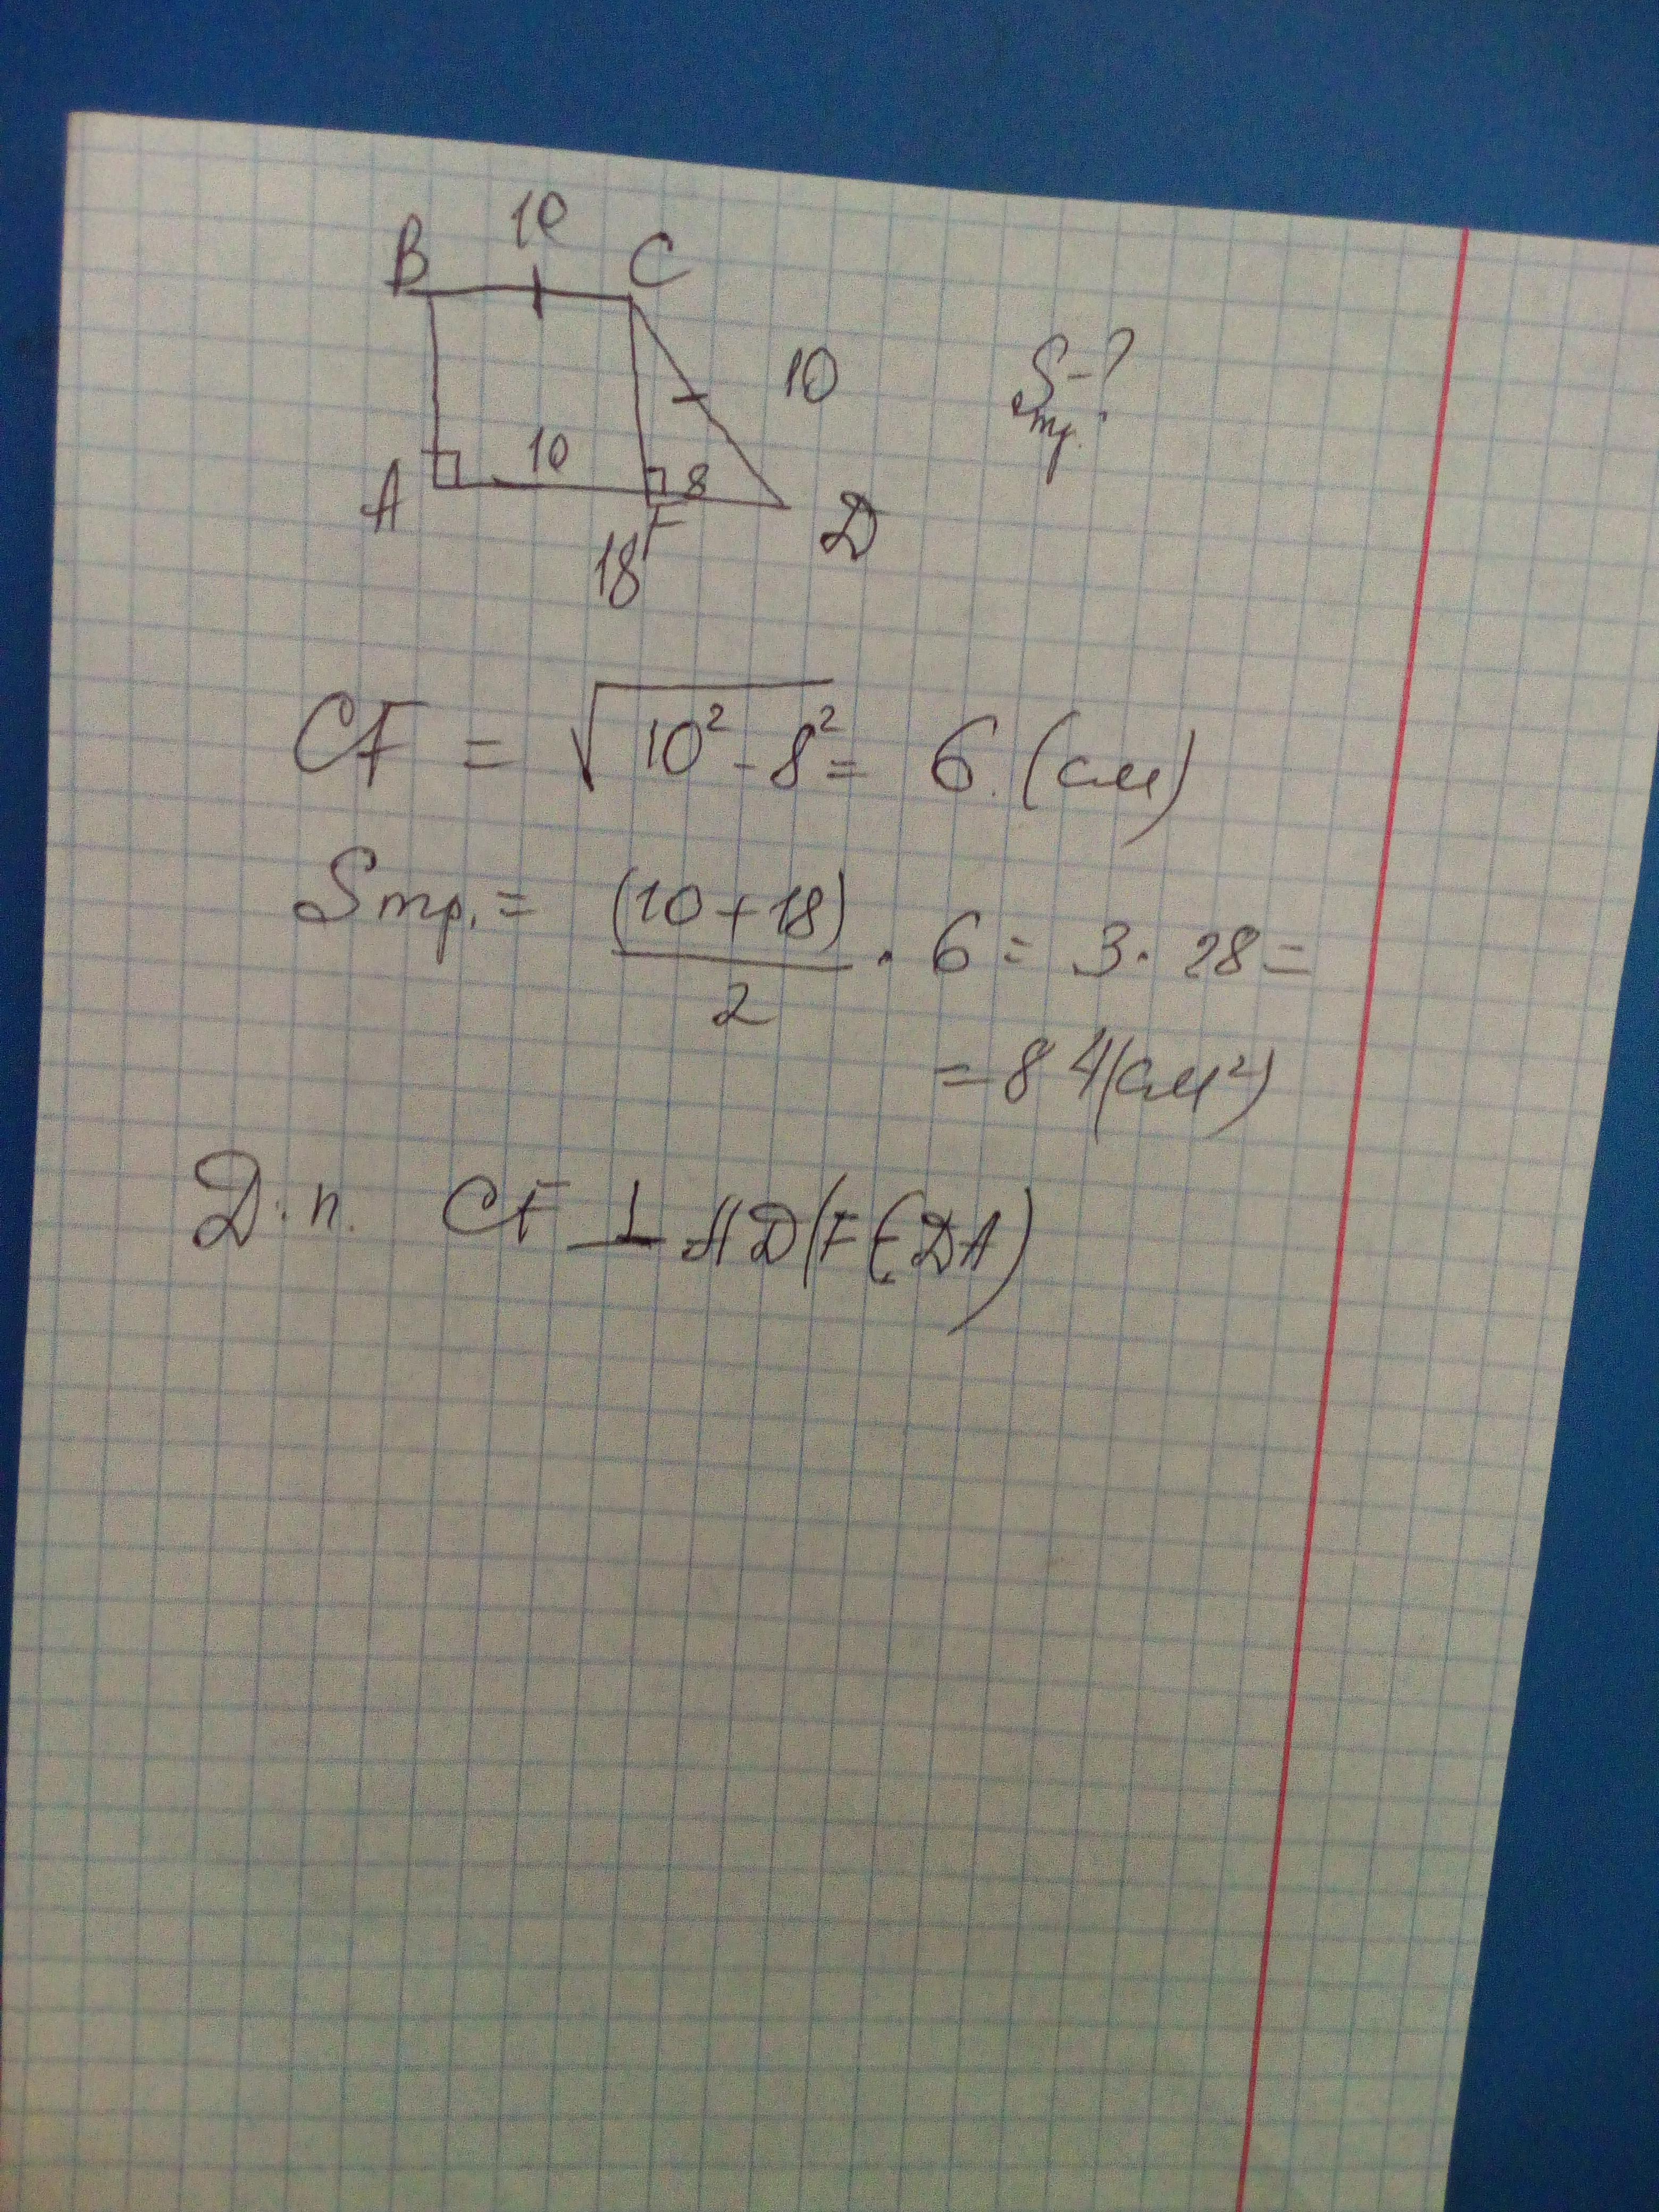 10
B C
10
Sтр. - ?
10
A 8 D
F
18
CF = √10² - 8² = 6 (см)
Sтр. = (10 + 18)/2 · 6 = 3 · 28 =
= 84 (см²)
D.п. CF ⊥ AD (F ∈ DA)